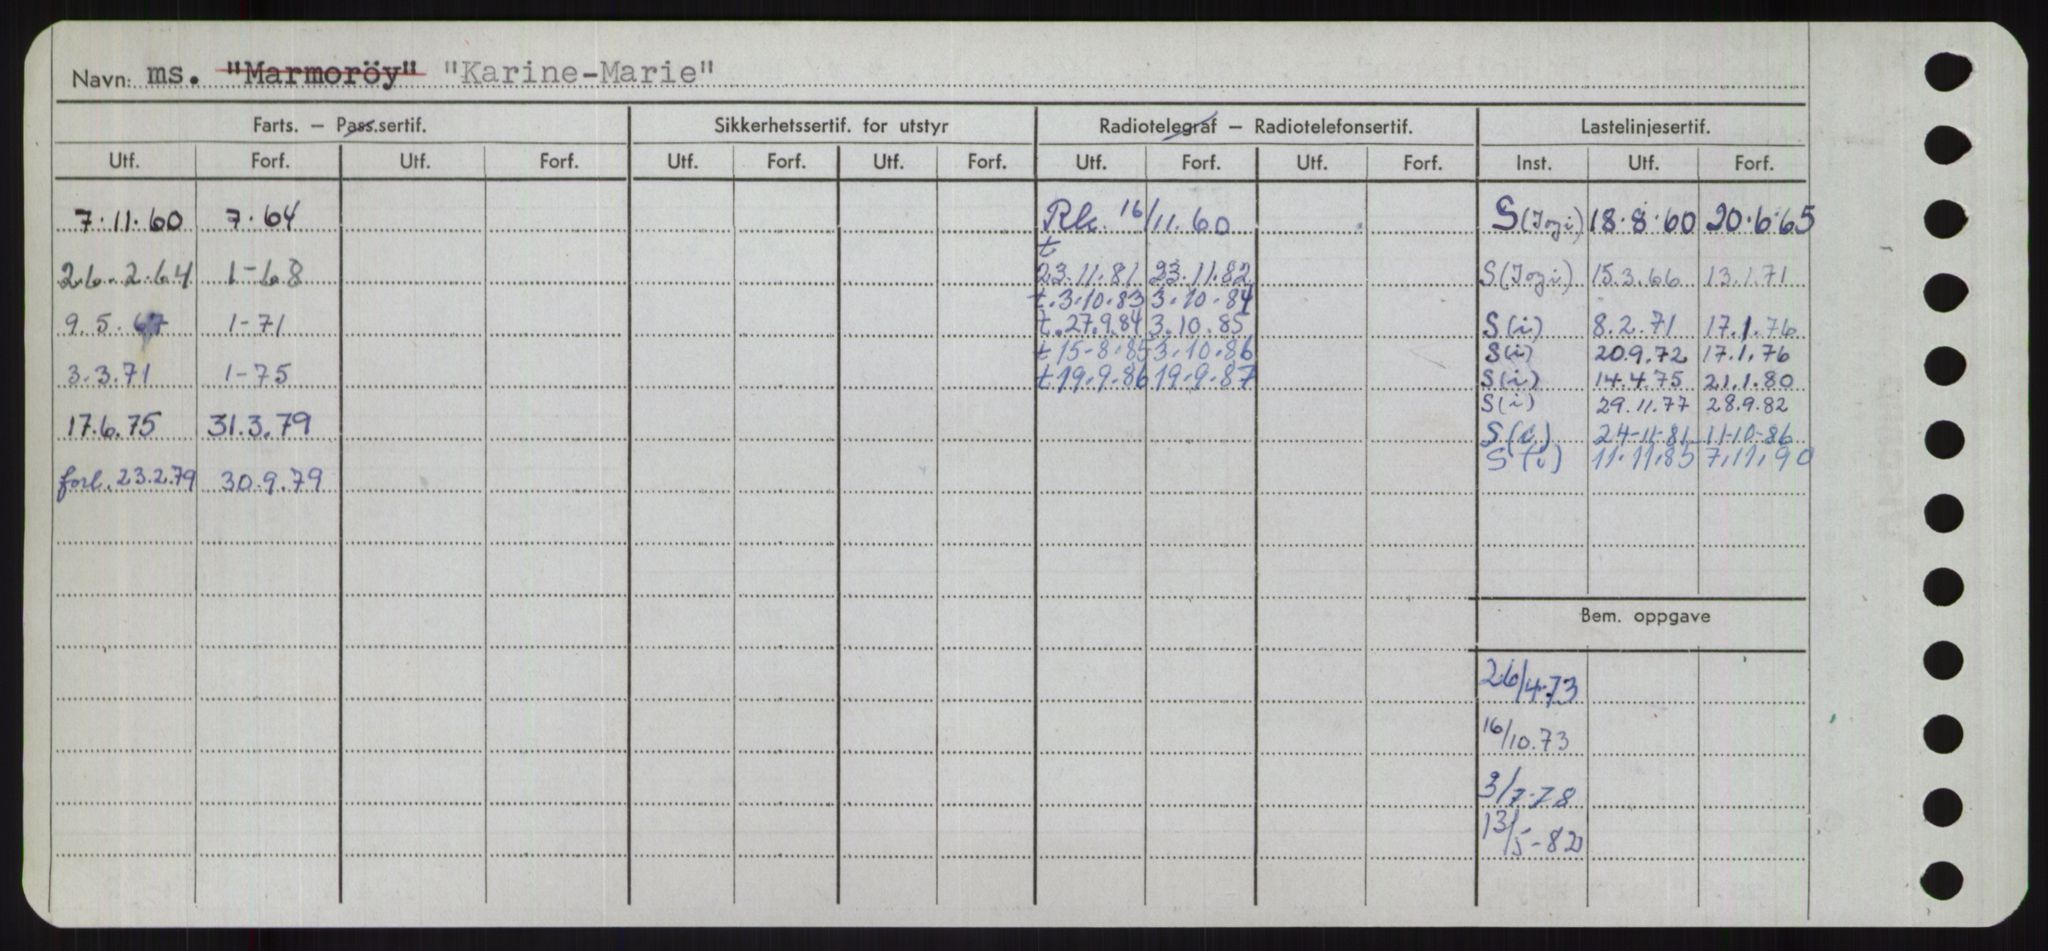 Navn: ms. "Marmoröy" "Karine-Marie"
Farts. – Pass.sertif. Sikkerhetssertif. for utstyr Radiotelegraf – Radiotelefonsertif. Lastelinjesertif.
Utf. Forf. Utf. Forf. Utf. Forf. Utf. Forf. Utf. Forf. Utf. Forf. Inst. Utf. Forf.
7.11.60 7.64 16/11.60 S 18.8.60 20.6.65
t
26.2.64 1-68 23.11.81 23.11.82 S 15.3.66 13.1.71
t.3.10.83 3.10.84
9.5.67 1-71 t.27.9.84 3.10.85 S(i) 8.2.71 17.1.76
t 15-8-85 3.10.86 S(i) 20.9.72 17.1.76
3.3.71 1-75 t 19.9.86 19.9.87 S(i) 14.4.75 21.1.80
S(i) 29.11.77 28.9.82
17.6.75 31.3.79 S(i) 24-11-81 11-10-86
S(i) 11.11.85 7.11.90
forl. 23.2.79 30.9.79
Bem. oppgave
26/4.73
16/10.73
3/7-78
13/5-82